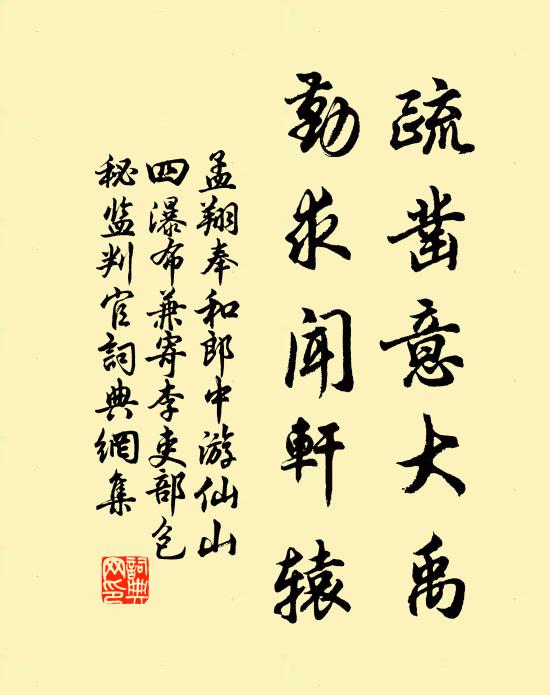 疏凿意大禹
勤求闻軒辕
孟翔奉和郎中游仙山
四瀑布兼寄李吏部包
秘监判官詞典網集
詞典网印